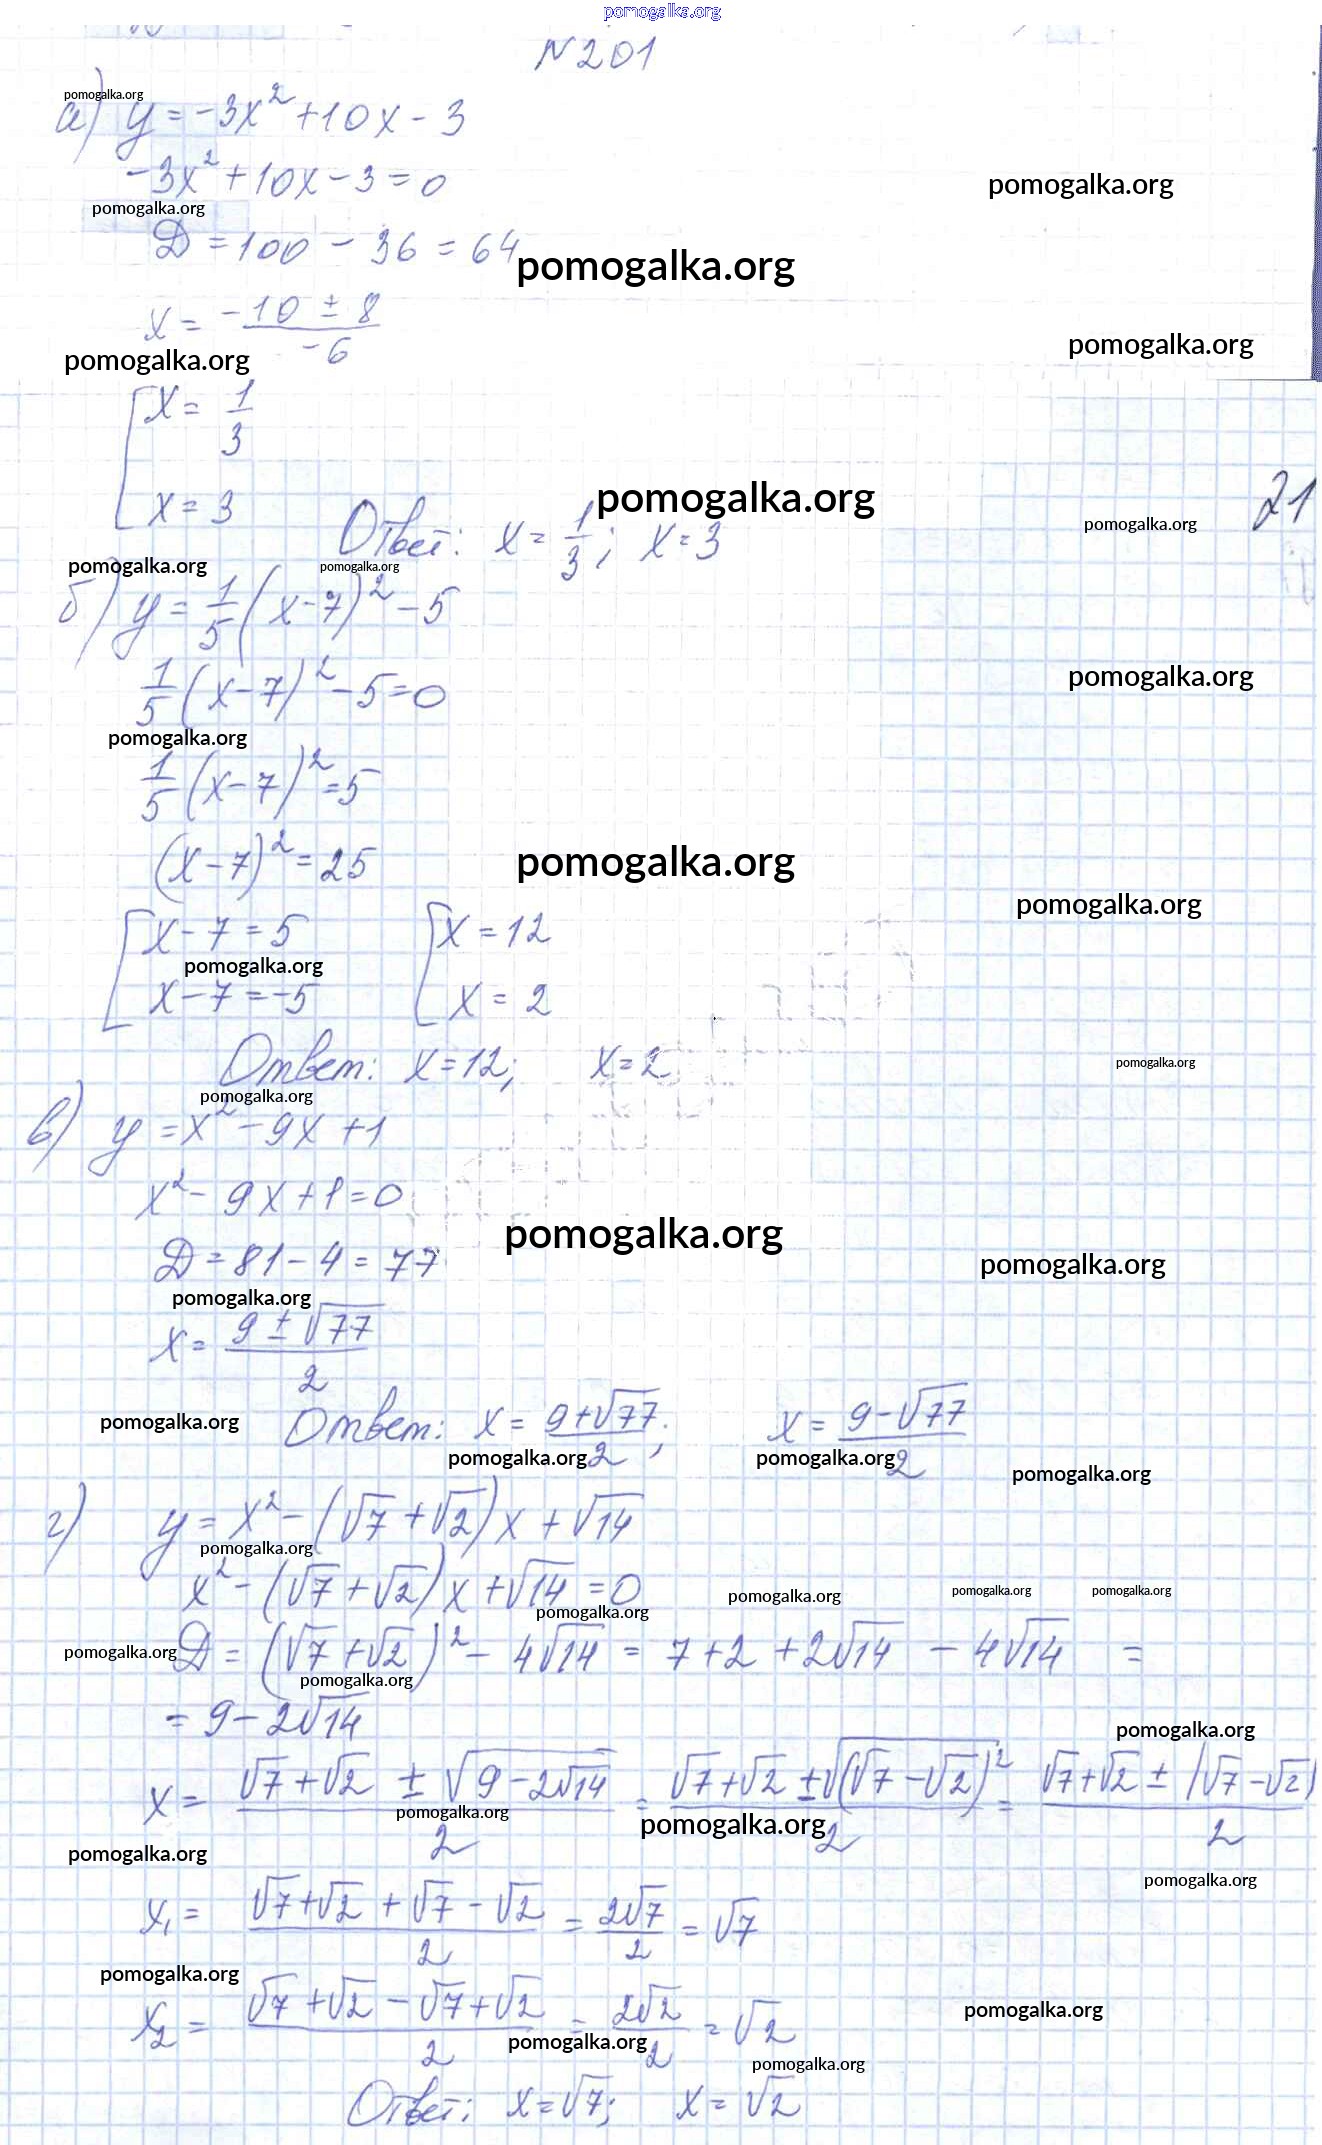 pomogalka.org
N 201
pomogalka.org
а) y = -3x² + 10x - 3
-3x² + 10x - 3 = 0
pomogalka.org
pomogalka.org
Д = 100 - 36 = 64
pomogalka.org
x = (-10 ± 8)/(-6)
pomogalka.org
pomogalka.org
[ x = 1/3
x = 3
pomogalka.org
21
pomogalka.org
Ответ: x = 1/3; x = 3
pomogalka.org
pomogalka.org
б) y = 1/5 (x - 7)² - 5
1/5 (x - 7)² - 5 = 0
pomogalka.org
pomogalka.org
1/5 (x - 7)² = 5
(x - 7)² = 25
pomogalka.org
pomogalka.org
[ x - 7 = 5 [ x = 12
pomogalka.org
x - 7 = -5 x = 2
Ответ: x = 12; x = 2
pomogalka.org
pomogalka.org
в) y = x² - 9x + 1
x² - 9x + 1 = 0
pomogalka.org
Д = 81 - 4 = 77
pomogalka.org
pomogalka.org
x = (9 ± √77)/2
pomogalka.org
Ответ: x = (9 + √77)/2; x = (9 - √77)/2
pomogalka.org
pomogalka.org
pomogalka.org
г) y = x² - (√7 + √2)x + √14
pomogalka.org
x² - (√7 + √2)x + √14 = 0
pomogalka.org
pomogalka.org
pomogalka.org
pomogalka.org
pomogalka.org
Д = (√7 + √2)² - 4√14 = 7 + 2 + 2√14 - 4√14 =
pomogalka.org
= 9 - 2√14
pomogalka.org
x = (√7 + √2 ± √(9 - 2√14))/2 = (√7 + √2 ± √((√7 - √2)²))/2 = (√7 + √2 ± (√7 - √2))/2
pomogalka.org
pomogalka.org
pomogalka.org
pomogalka.org
x₁ = (√7 + √2 + √7 - √2)/2 = 2√7/2 = √7
pomogalka.org
pomogalka.org
x₂ = (√7 + √2 - √7 + √2)/2 = 2√2/2 = √2
pomogalka.org
pomogalka.org
Ответ: x = √7; x = √2